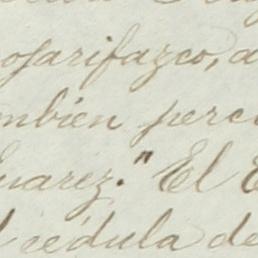 ojarifazgo, a
mbien perc
uarez." El E
cédula de